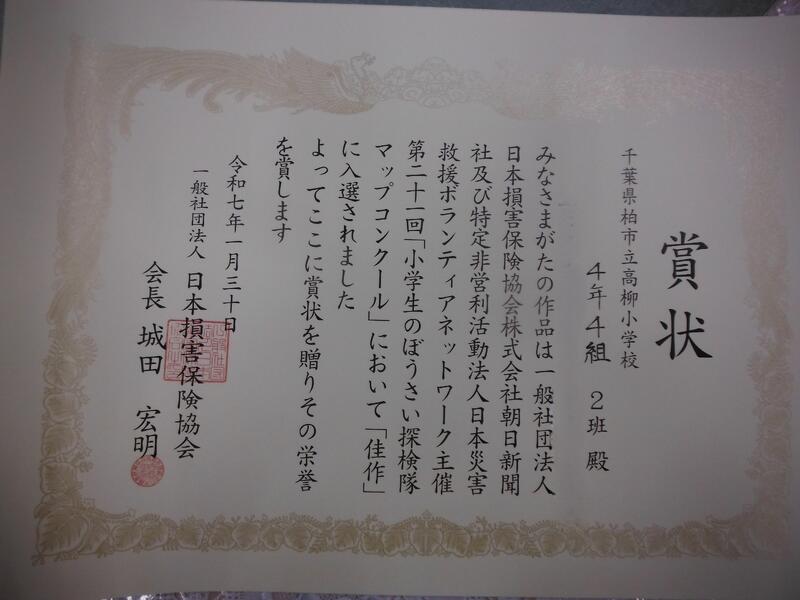 賞状
千葉県柏市立高柳小学校
4年4組 2班 殿
みなさまがたの作品は一般社団法人
日本損害保険協会株式会社朝日新聞
社及び特定非営利活動法人日本災害
救援ボランティアネットワーク主催
第二十一回「小学生のぼうさい探検隊
マップコンクール」において「佳作」
に入選されました
よってここに賞状を贈りその栄誉
を賞します
令和七年一月三十日
一般社団法人 日本損害保険協会
会長 城田 宏明